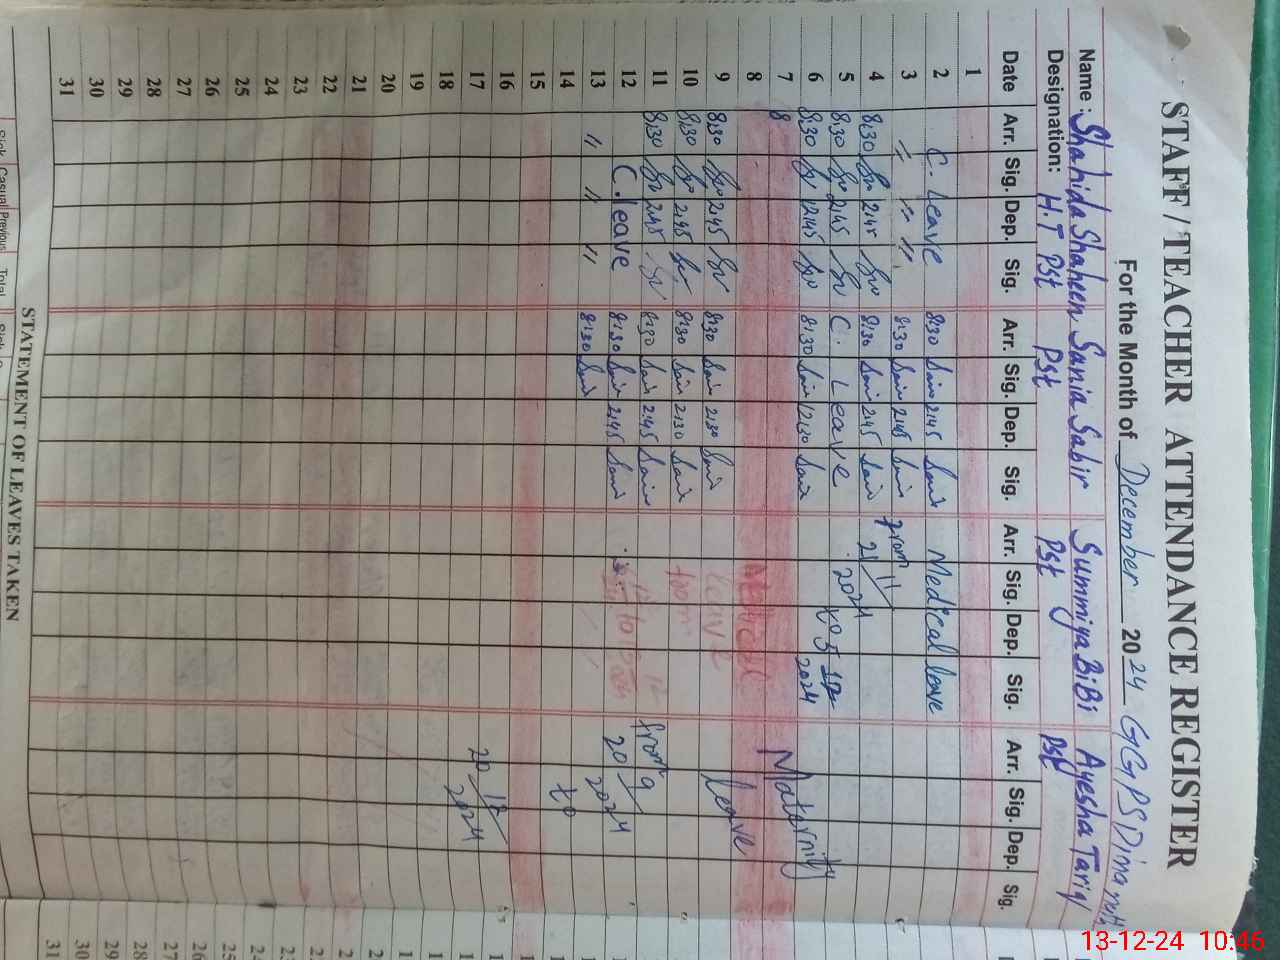 STAFF / TEACHER ATTENDANCE REGISTER
For the Month of December 2024 GGPS
Name : Shahida Shaheen Sania Sabir Summiya BiBi Ayesha Tariq
Designation: H.T Pst Pst Pst Pst
Date Arr. Sig. Dep. Sig. Arr. Sig. Dep. Sig. Arr. Sig. Dep. Sig. Arr. Sig. Dep. Sig.
1
2 C. leave 8:30 2:45 Medical leave
3 " " " 8:30 2:45 from
4 8:30 2:45 8:30 2:45 21/11
5 8:30 2:45 C. Leave 2024 to 5 12
6 8:30 12:45 8:30 12:30 2024 Maternity
7 8
8 Medical
9 8:30 2:45 8:30 2:30 leave leave
10 8:30 2:45 8:30 2:30 from
11 8:30 2:45 8:30 2:45 from 9
12 C. leave 8:30 2:45 to 20 2024
13 " " " 8:30
14 to
15
16
17 20 12 2024
18
19
20
21
22
23
24
25
26
27
28
29
30
31
STATEMENT OF LEAVES TAKEN
Casual Previous Total
13-12-24 10:46